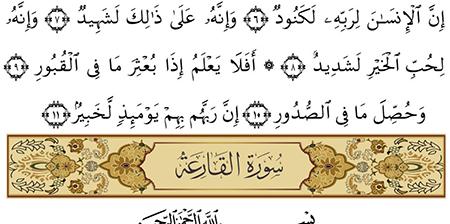 إِنَّ ٱلْإِنسَـٰنَ لِرَبِّهِۦ لَكَنُودٌ ﴿٦﴾ وَإِنَّهُۥ عَلَىٰ ذَٰلِكَ لَشَهِيدٌ ﴿٧﴾ وَإِنَّهُۥ
لِحُبِّ ٱلْخَيْرِ لَشَدِيدٌ ﴿٨﴾ ۞ أَفَلَا يَعْلَمُ إِذَا بُعْثِرَ مَا فِى ٱلْقُبُورِ ﴿٩﴾
وَحُصِّلَ مَا فِى ٱلصُّدُورِ ﴿١٠﴾ إِنَّ رَبَّهُم بِهِمْ يَوْمَئِذٍ لَّخَبِيرٌۢ ﴿١١﴾
سُورَةُ القَارِعَةِ
بِسْمِ ٱللَّهِ ٱلرَّحْمَـٰنِ ٱلرَّحِيمِ